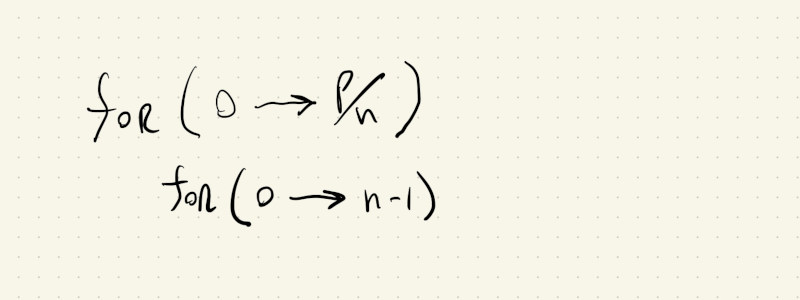 for (0 → P/n)
for (0 → n-1)